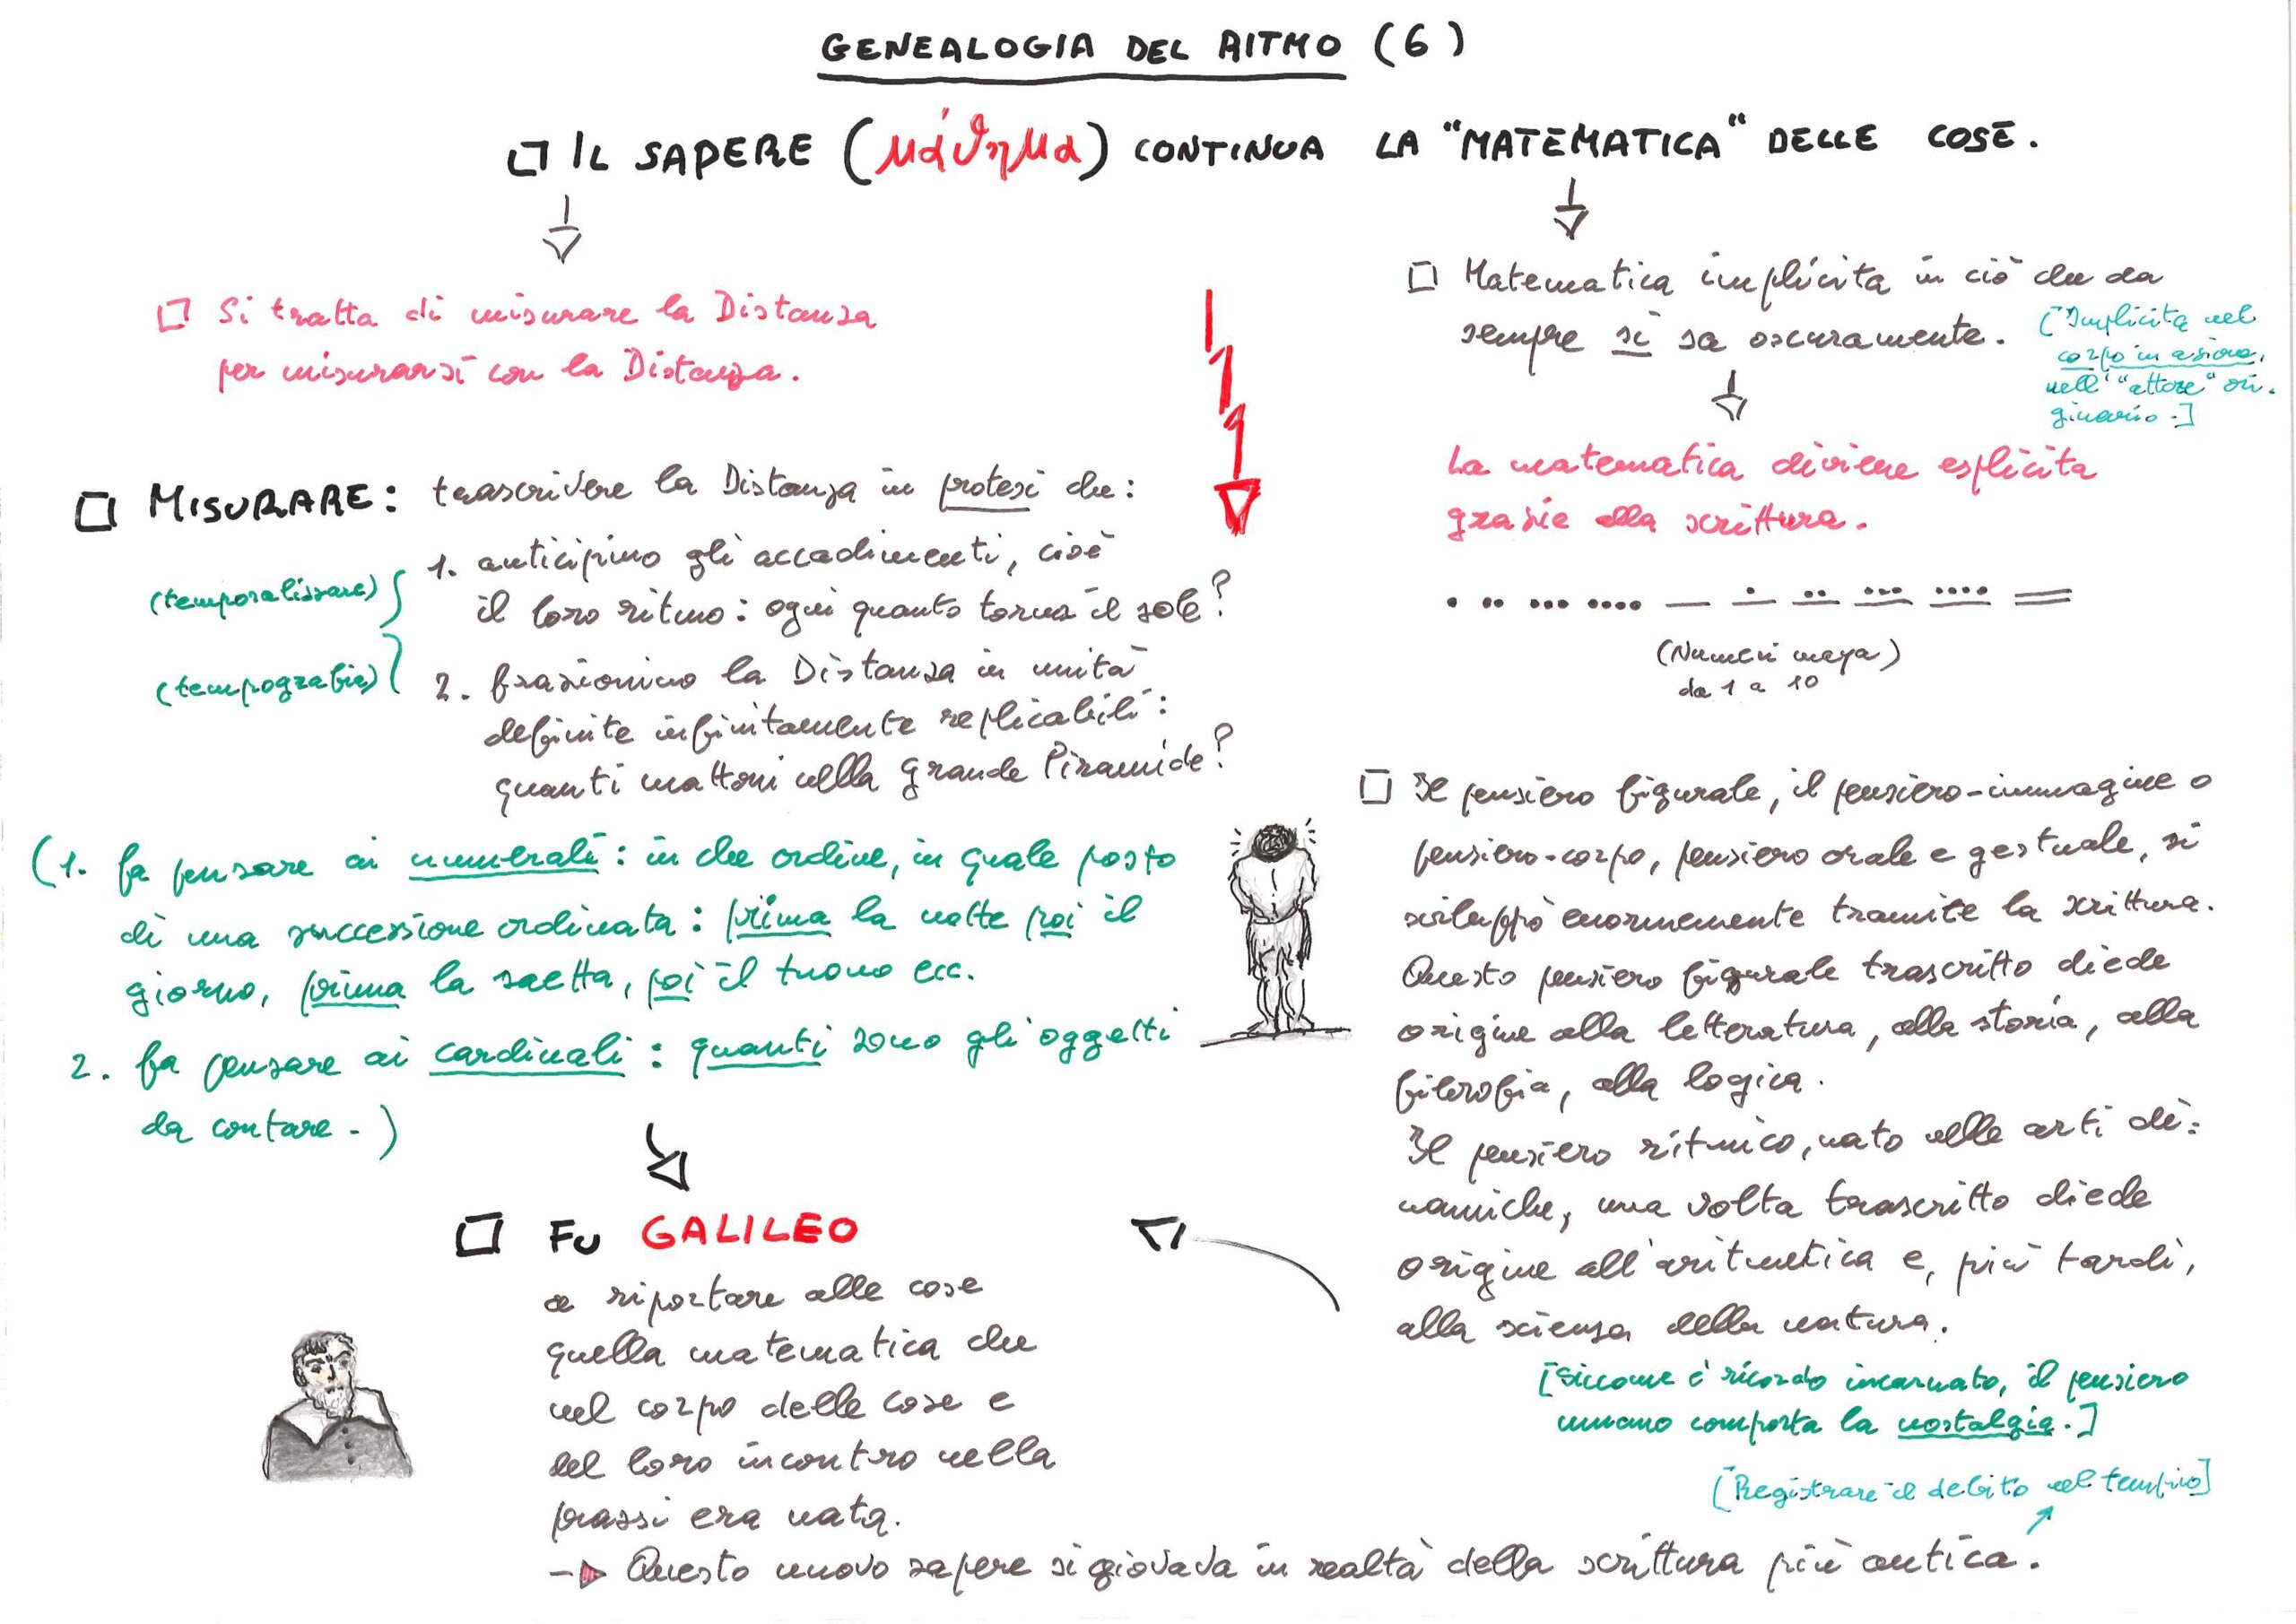 GENEALOGIA DEL RITMO (6)
IL SAPERE (μάϑημα) CONTINUA LA "MATEMATICA" DELLE COSE.
Si tratta di misurare la Distanza
per misurarsi con la Distanza.
MISURARE: trascrivere la Distanza in protesi che:
(temporalizzare)
1. anticipino gli accadimenti, cioè
il loro ritmo: ogni quanto torna il sole?
(tempografia)
2. frazionino la Distanza in unità
definite infinitamente replicabili:
quanti mattoni nella grande Piramide?
(1. fa pensare ai numerali: in che ordine, in quale posto
di una successione ordinata: prima la notte poi il
giorno, prima la saetta, poi il tuono ecc.
2. fa pensare ai cardinali: quanti sono gli oggetti
da contare.)
FU GALILEO
a riportare alle cose
quella matematica che
nel corpo delle cose e
del loro incontro nella
prassi era nata.
Matematica implicita in ciò che da
sempre si sa oscuramente.
[Implicita nel
corpo in azione,
nell'"attore" ori-
ginario.]
La matematica diviene esplicita
grazie alla scrittura.
(Numeri maya)
da 1 a 10
Il pensiero figurale, il pensiero-immagine o
pensiero-corpo, pensiero orale e gestuale, si
sviluppò enormemente tramite la scrittura.
Questo pensiero figurale trascritto diede
origine alla letteratura, alla storia, alla
filosofia, alla logica.
Il pensiero ritmico, nato nelle arti di=
namiche, una volta trascritto diede
origine all'aritmetica e, più tardi,
alla scienza della natura.
[Siccome è ricordo incarnato, il pensiero
umano comporta la nostalgia.]
[Registrare il debito nel tempio]
Questo nuovo sapere si giovava in realtà della scrittura più antica.